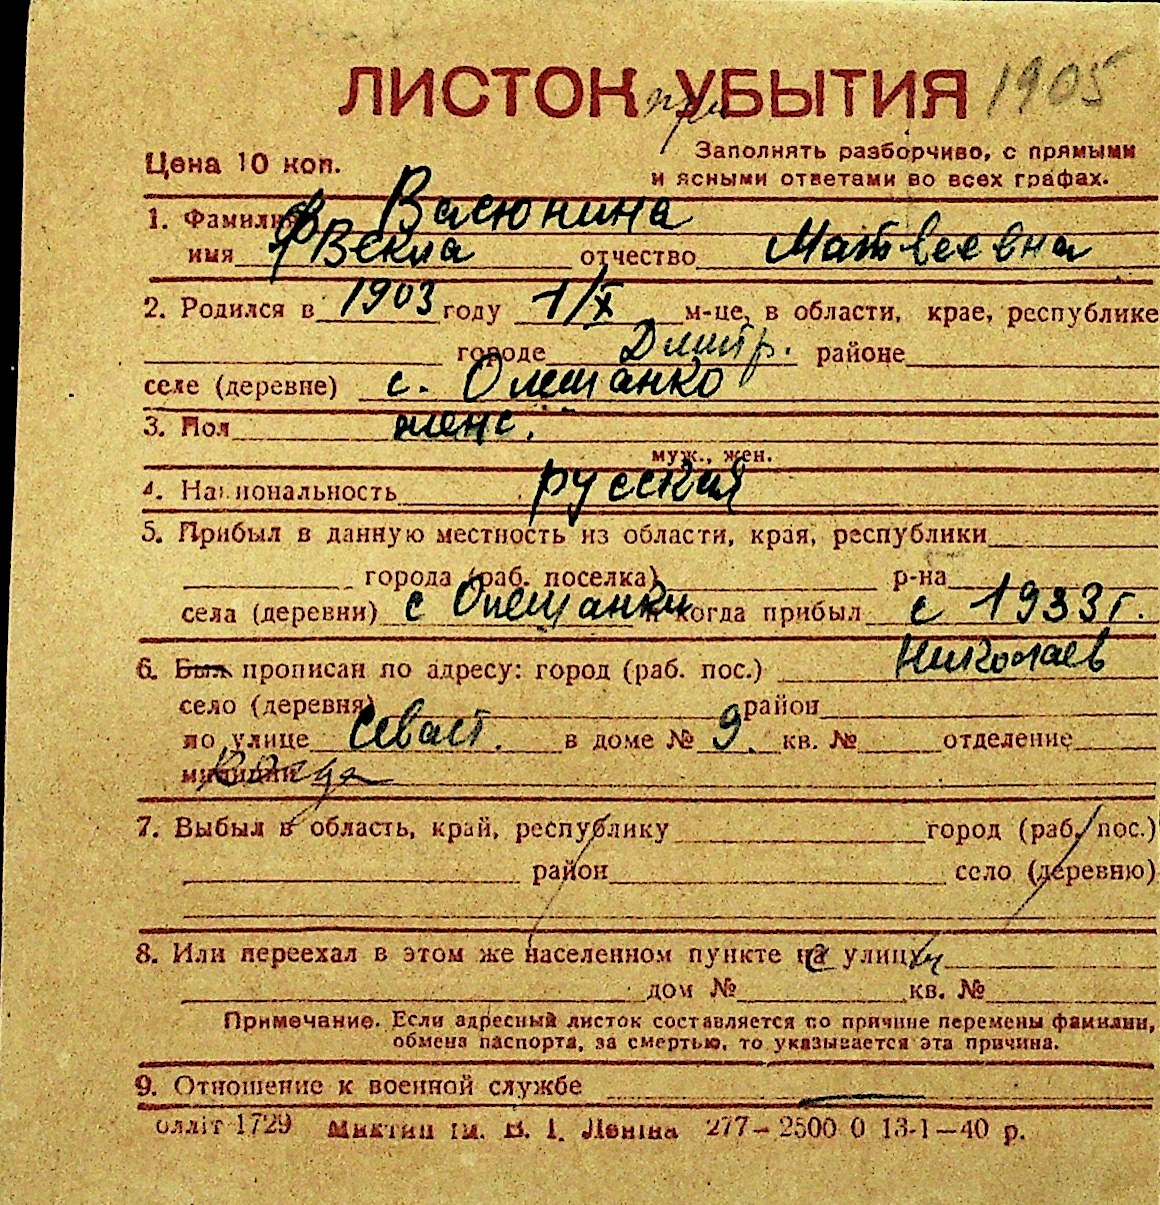 ЛИСТОК при УБЫТИЯ 1905
Цена 10 коп.
Заполнять разборчиво, с прямыми
и ясными ответами во всех графах.
1. Фамилия Васюнина
имя Фекла отчество Матвеевна
2. Родился в 1903 году 1/X м-це, в области, крае, республике
городе Дмитр. районе
селе (деревне) с. Олешанко
3. Пол женс.
муж., жен.
4. Национальность русская
5. Прибыл в данную местность из области, края, республики
города (раб. поселка) р-на
села (деревни) с Олешанки и когда прибыл с 1933 г.
6. Был прописан по адресу: город (раб. пос.) Николаев
село (деревня) район
по улице Севаст. в доме № 9. кв. № отделение
милиции
7. Выбыл в область, край, республику город (раб. пос.)
район село (деревню)
8. Или переехал в этом же населенном пункте на улицу
дом № кв. №
Примечание. Если адресный листок составляется по причине перемены фамилии,
обмена паспорта, за смертью, то указывается эта причина.
9. Отношение к военной службе
олліт 1729 Миктип ім. В. І. Леніна 277—2500 0 13-1—40 р.